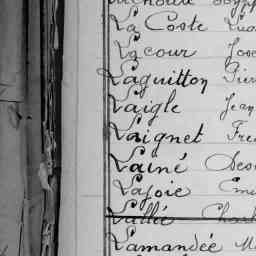 La Coste
Lacour José
Laguitton Pier
Laigle Jean
Laignet Fre
Lainé
Lajoie
Vallée Charl
Lamandée